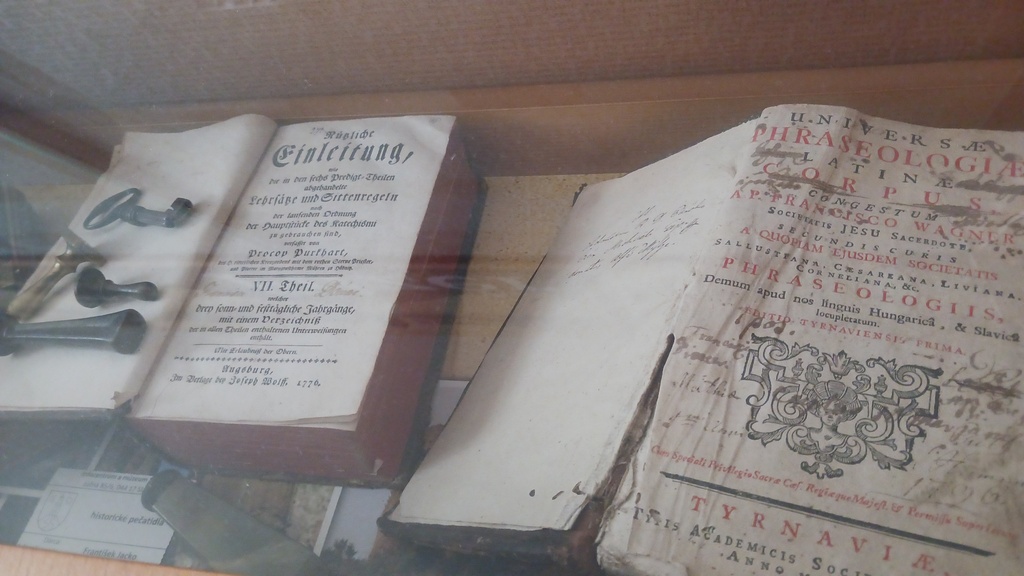 Nützliche
Einleitung,
wie
die in den sechs Predigt-Theilen
abgehandelte
Lehrsätze und Sittenregeln
nach
der laufenden Ordnung
der Hauptstücke des Katechismi
zu gebrauchen sind,
verfasset von
Procop Purkart,
VII. Theil.
welcher
dery sonn- und festtägliche Jahrgänge,
mit einem Verzeichniß
der in allen Theilen enthaltenen Unterweisungen
enthält.
Mit Erlaubniß der Obern.
Augsburg,
Im Verlage der Joseph Wolff. 1776.
UNIVERSÆ
PHRASEOLOGIÆ
LATINÆ
CORPUS
CONGESTUM
A P. FRANCISCO WAGNER
Societatis JESU Sacerdote,
SECUNDIS CURIS
A QUOPIAM EJUSDEM SOCIETATIS
SALLUSTIANA, CÆSAREANA, LIVIANA,
CORNELIANA, &c.
PHRASEOLOGIIS,
Demum apud nos linguis Hungaricâ, & Slavicâ
locupletatum.
EDITIO TYRNAVIENSIS PRIMA.
Cum Speciali Privilegio Sacræ Cæs. Regiæque Majest. & Permissu Superiorum
TYRNAVIÆ,
TYPIS ACADEMICIS SOCIE
ANNO
historické pečatidlá
František Jacko